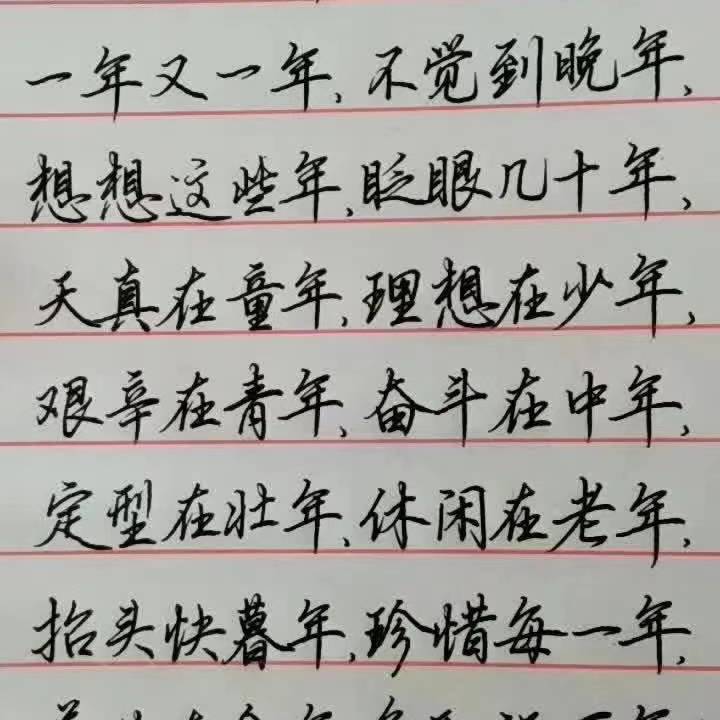 一年又一年，不觉到晚年，
想想这些年，眨眼几十年，
天真在童年，理想在少年，
艰辛在青年，奋斗在中年，
定型在壮年，休闲在老年，
抬头快暮年，珍惜每一年，